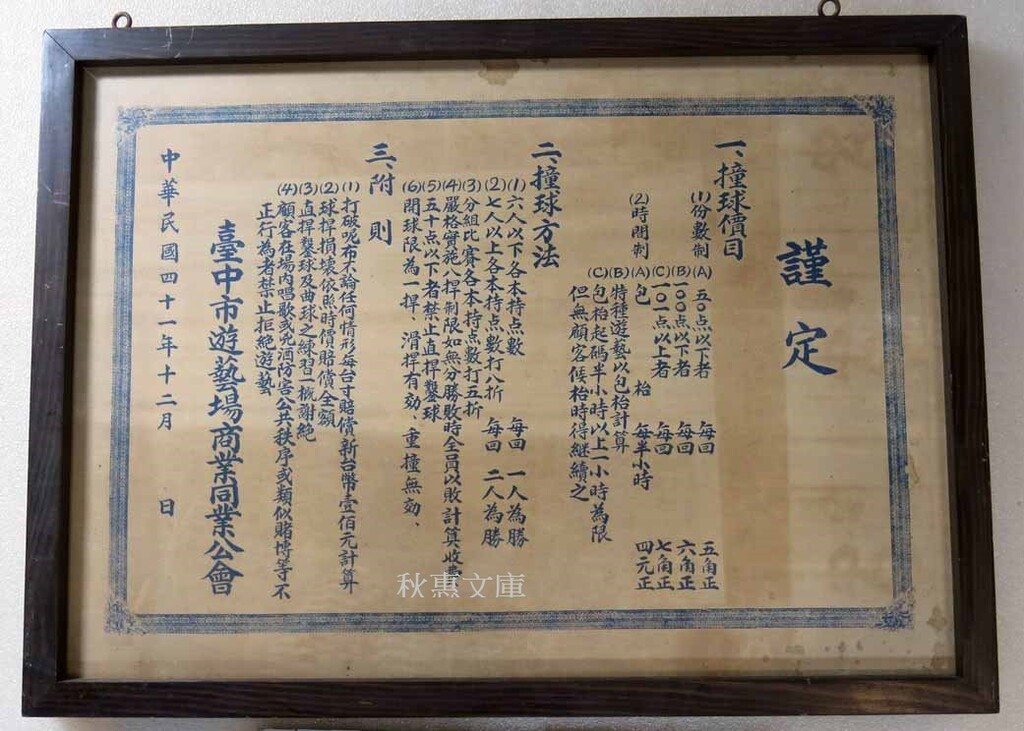 謹定
一、撞球價目
(1)份數制
(A)五〇点以下者 每回 五角正
(B)一〇〇点以下者 每回 六角正
(C)一〇一点以上者 每回 七角正
(2)時間制
(A)包枱 每半小時 四元正
(B)特種遊藝以包枱計算
(C)包枱起碼半小時以上一小時為限
但無顧客候枱時得繼續之
二、撞球方法
(1)六人以下各本持点數 每回 一人為勝
(2)七人以上各本持点數打八折 每回 二人為勝
(3)分組比賽各本持点數打五折
(4)嚴格實施八桿制限如無分勝敗時全員以敗計算收費
(5)五十点以下者禁止直桿鑿球
(6)開球限為一桿、滑桿有効、重撞無効、
三、附則
(1)打破呢布不論任何情形每台寸賠償新台幣壹佰元計算
(2)球桿損壞依照時價賠償全額
(3)直桿鑿球及曲球之練習一概謝絕
(4)顧客在場內唱歌或兇酒防害公共秩序或類似賭博等不
正行為者禁止拒絕遊藝
臺中市遊藝場商業同業公會
中華民國四十一年十二月 日
秋惠文庫